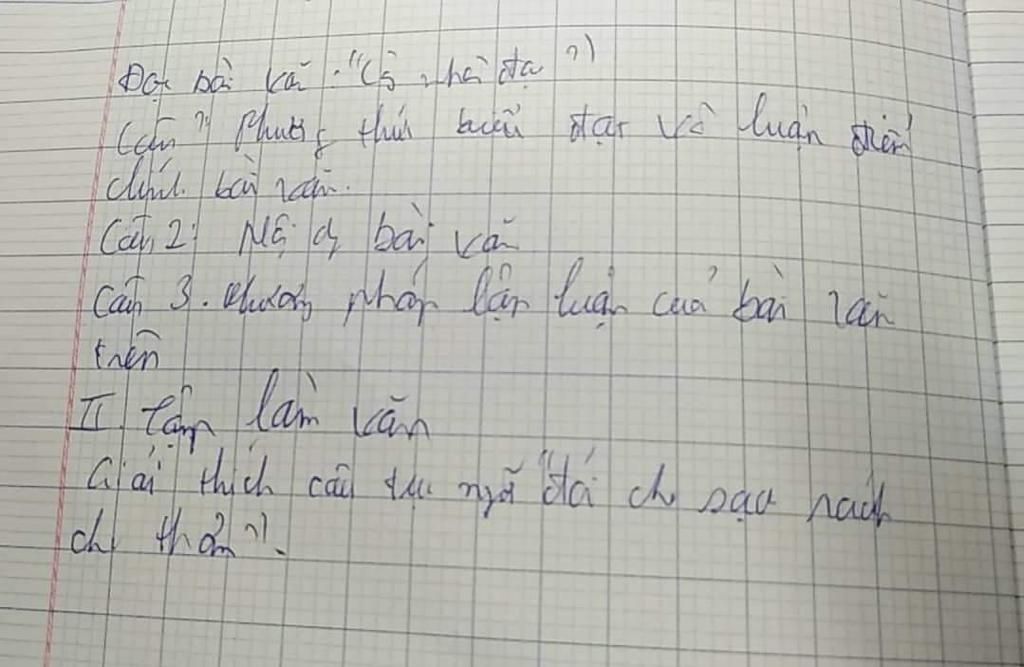 Đọc bài văn "Có nhà đạ"
Câu 1 Phương thức biểu đạt và luận điểm
chính bài văn.
Câu 2: bài văn
Câu 3. Phương pháp lập luận của bài văn
trên
II. Tập làm văn
Giải thích câu tục ngữ "đói cho sạch rách
cho thơm".